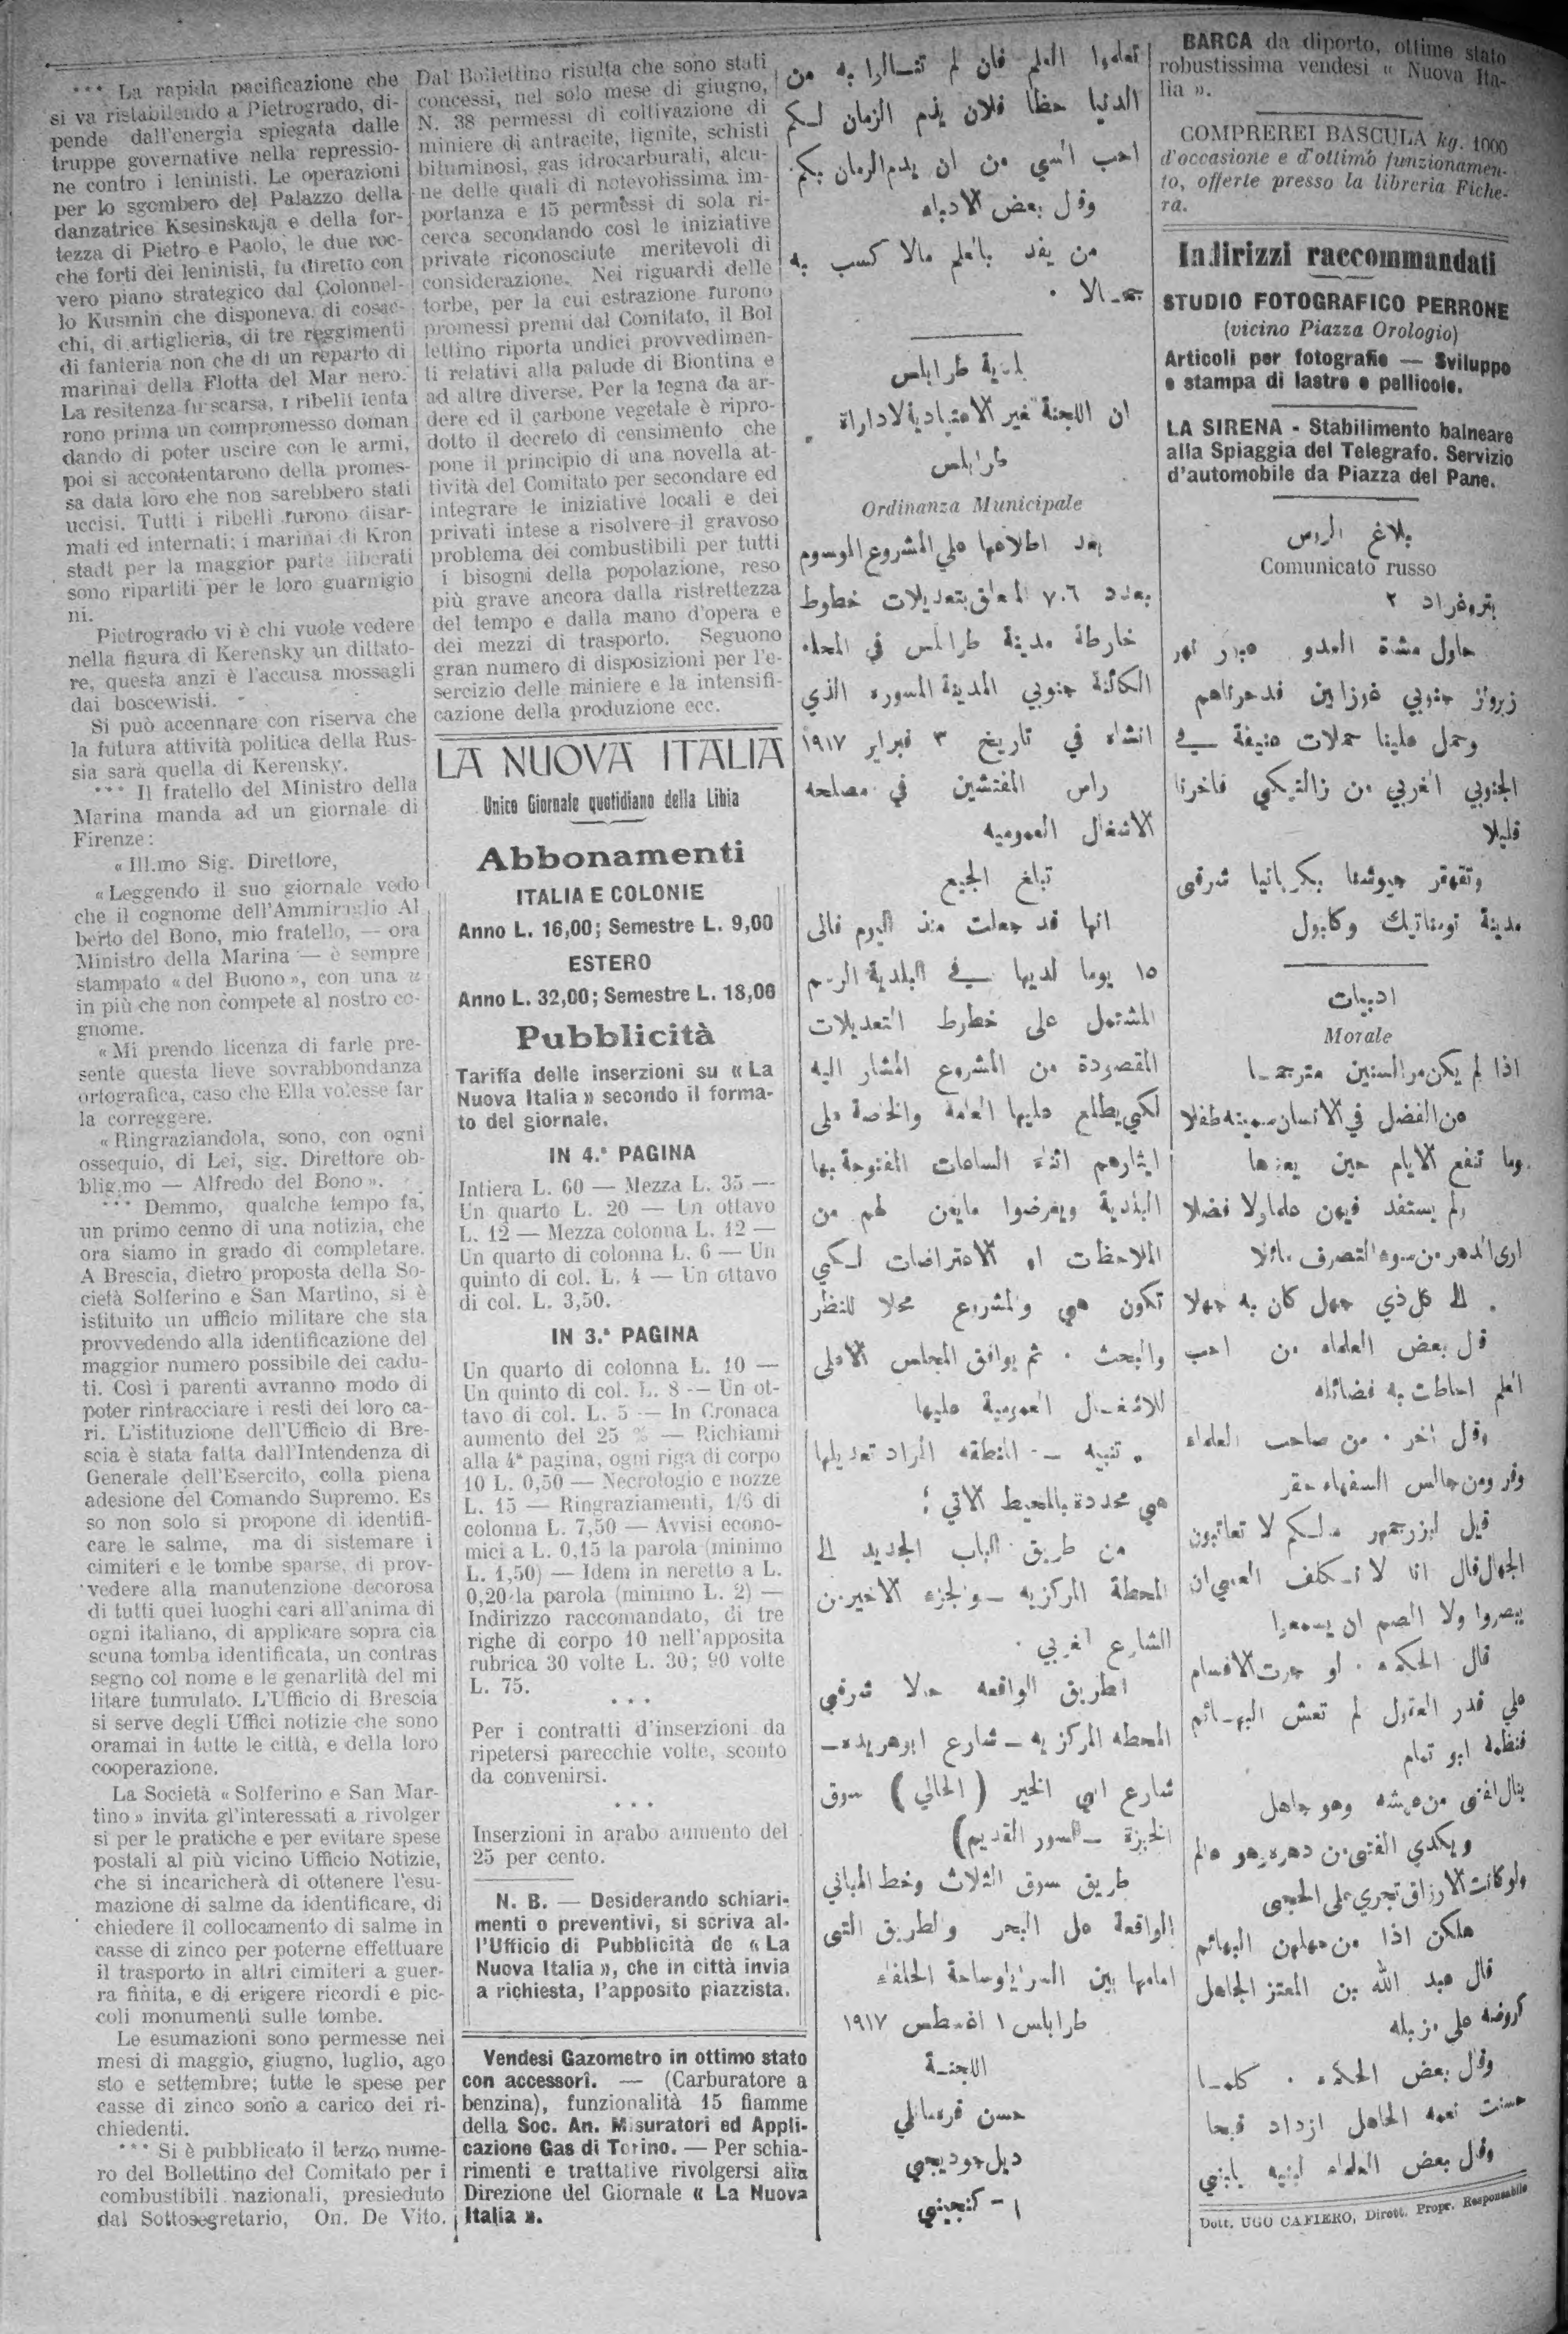 *** La rapida pacificazione che
si va ristabilendo a Pietrogrado, di-
pende dall'energia spiegata dalle
truppe governative nella repressio-
ne contro i leninisti. Le operazioni
per lo sgombero del Palazzo della
danzatrice Ksesinskaja e della for-
tezza di Pietro e Paolo, le due roc-
che forti dei leninisti, fu diretto con
vero piano strategico dal Colonnel-
lo Kusmin che disponeva di cosac-
chi, di artiglieria, di tre reggimenti
di fanteria non che di un reparto di
marinai della Flotta del Mar nero.
La resitenza fu scarsa, i ribelli tenta
rono prima un compromesso doman
dando di poter uscire con le armi,
poi si accontentarono della promes-
sa data loro che non sarebbero stati
uccisi. Tutti i ribelli furono disar-
mati ed internati; i marinai di Kron
stadt per la maggior parte liberati
sono ripartiti per le loro guarnigio
ni.
Pietrogrado vi è chi vuole vedere
nella figura di Kerensky un dittato-
re, questa anzi è l'accusa mossagli
dai boscewisti.
Si può accennare con riserva che
la futura attività politica della Rus-
sia sarà quella di Kerensky.
*** Il fratello del Ministro della
Marina manda ad un giornale di
Firenze:
« Ill.mo Sig. Direttore,
« Leggendo il suo giornale vedo
che il cognome dell'Ammiraglio Al
berto del Bono, mio fratello, — ora
Ministro della Marina — è sempre
stampato « del Buono », con una u
in più che non compete al nostro co-
gnome.
« Mi prendo licenza di farle pre-
sente questa lieve sovrabbondanza
ortografica, caso che Ella volesse far
la correggere.
« Ringraziandola, sono, con ogni
ossequio, di Lei, sig. Direttore ob-
blig.mo — Alfredo del Bono ».
*** Demmo, qualche tempo fa,
un primo cenno di una notizia, che
ora siamo in grado di completare.
A Brescia, dietro proposta della So-
cietà Solferino e San Martino, si è
istituito un ufficio militare che sta
provvedendo alla identificazione del
maggior numero possibile dei cadu-
ti. Così i parenti avranno modo di
poter rintracciare i resti dei loro ca-
ri. L'istituzione dell'Ufficio di Bre-
scia è stata fatta dall'Intendenza di
Generale dell'Esercito, colla piena
adesione del Comando Supremo. Es
so non solo si propone di identifi-
care le salme, ma di sistemare i
cimiteri e le tombe sparse, di prov-
vedere alla manutenzione decorosa
di tutti quei luoghi cari all'anima di
ogni italiano, di applicare sopra cia
scuna tomba identificata, un contras
segno col nome e le genarlità del mi
litare tumulato. L'Ufficio di Brescia
si serve degli Uffici notizie che sono
oramai in tutte le città, e della loro
cooperazione.
La Società « Solferino e San Mar-
tino » invita gl'interessati a rivolger
si per le pratiche e per evitare spese
postali al più vicino Ufficio Notizie,
che si incaricherà di ottenere l'esu-
mazione di salme da identificare, di
chiedere il collocamento di salme in
casse di zinco per poterne effettuare
il trasporto in altri cimiteri a guer-
ra finita, e di erigere ricordi e pic-
coli monumenti sulle tombe.
Le esumazioni sono permesse nei
mesi di maggio, giugno, luglio, ago
sto e settembre; tutte le spese per
casse di zinco sono a carico dei ri-
chiedenti.
*** Si è pubblicato il terzo nume-
ro del Bollettino del Comitato per i
combustibili nazionali, presieduto
dal Sottosegretario, On. De Vito.
Dal Bollettino risulta che sono stati
concessi, nel solo mese di giugno,
N. 38 permessi di coltivazione di
miniere di antracite, lignite, schisti
bituminosi, gas idrocarburati, alcu-
ne delle quali di notevolissima im-
portanza e 15 permessi di sola ri-
cerca secondando così le iniziative
private riconosciute meritevoli di
considerazione. Nei riguardi delle
torbe, per la cui estrazione furono
promessi premi dal Comitato, il Bol
lettino riporta undici provvedimen-
ti relativi alla palude di Biontina e
ad altre diverse. Per la legna da ar-
dere ed il carbone vegetale è ripro-
dotto il decreto di censimento che
pone il principio di una novella at-
tività del Comitato per secondare ed
integrare le iniziative locali e dei
privati intese a risolvere il gravoso
problema dei combustibili per tutti
i bisogni della popolazione, reso
più grave ancora dalla ristrettezza
del tempo e dalla mano d'opera e
dei mezzi di trasporto. Seguono
gran numero di disposizioni per l'e-
sercizio delle miniere e la intensifi-
cazione della produzione ecc.
LA NUOVA ITALIA
Unico Giornale quotidiano della Libia
Abbonamenti
ITALIA E COLONIE
Anno L. 16,00; Semestre L. 9,00
ESTERO
Anno L. 32,00; Semestre L. 18,00
Pubblicità
Tariffa delle inserzioni su « La
Nuova Italia » secondo il forma-
to del giornale.
IN 4.ª PAGINA
Intiera L. 60 — Mezza L. 35 —
Un quarto L. 20 — Un ottavo
L. 12 — Mezza colonna L. 12 —
Un quarto di colonna L. 6 — Un
quinto di col. L. 4 — Un ottavo
di col. L. 3,50.
IN 3.ª PAGINA
Un quarto di colonna L. 10 —
Un quinto di col. L. 8 — Un ot-
tavo di col. L. 5 — In Cronaca
aumento del 25 % — Richiami
alla 4ª pagina, ogni riga di corpo
10 L. 0,50 — Necrologio e nozze
L. 15 — Ringraziamenti, 1/6 di
colonna L. 7,50 — Avvisi econo-
mici a L. 0,15 la parola (minimo
L. 1,50) — Idem in neretto a L.
0,20 la parola (minimo L. 2) —
Indirizzo raccomandato, di tre
righe di corpo 10 nell'apposita
rubrica 30 volte L. 30; 90 volte
L. 75.
* * *
Per i contratti d'inserzioni da
ripetersi parecchie volte, sconto
da convenirsi.
* * *
Inserzioni in arabo aumento del
25 per cento.
N. B. — Desiderando schiari-
menti o preventivi, si scriva al-
l'Ufficio di Pubblicità de « La
Nuova Italia », che in città invia
a richiesta, l'apposito piazzista.
Vendesi Gazometro in ottimo stato
con accessori. — (Carburatore a
benzina), funzionalità 15 fiamme
della Soc. An. Misuratori ed Appli-
cazione Gas di Torino. — Per schia-
rimenti e trattative rivolgersi alla
Direzione del Giornale « La Nuova
Italia ».
تعلموا العلم فان لم تنالوا به من
الدنيا حظا فلان يذم الزمان لكم
احب الي من ان يذم الزمان بكم
وقال بعض الادباء
من يفد بالعلم مالا كسب به
جمالا .
بلدية طرابلس
ان اللجنة غير الاعتيادية لاداراة
طرابلس
Ordinanza Municipale
بعد اطلاعها علي المشروع الموسوم
بعدد ٧٠٦ المعلق بتعديلات خطوط
خارطة مدينة طرابلس في المحله
الكائنة جنوبي المدينة المسوره الذي
انشاه في تاريخ ٣ فبراير ١٩١٧
راس المفتشين في مصلحه
الاشغال العموميه
تبلغ الجميع
انها قد جعلت منذ اليوم فالى
١٥ يوما لديها في البلدية الرسم
المشتمل على خطوط التعديلات
المقصودة من المشروع المشار اليه
لكي يطلع عليها العامة والخاصة على
ايثارهم اثناء الساعات المفتوحة بها
البلدية ويعرضوا مايعن لهم من
الملاحظات او الاعتراضات لكي
تكون هي والمشروع محلا للنظر
والبحث . ثم يوافق المجلس الاعلى
للاشغال العمومية عليها
تنبيه — المنطقه المراد تعديلها
هي محددة بالمحيط الاتي :
من طريق الباب الجديد الى
المحطة المركزيه — والجزء الاخير من
الشارع الغربي .
الطريق الواقعه حالا شرقي
المحطه المركزيه — شارع ابو هريده —
شارع ابي الخير (الحالي) سوق
الخبزة — السور القديم)
طريق سوق الثلاث وخط المباني
الواقعة على البحر والطريق التى
امامها بين السرايا وساحة الحلفاء
طرابلس ١ اغسطس ١٩١٧
اللجنة
حسن قرمانلي
ا - كنجيني
BARCA da diporto, ottimo stato
robustissima vendesi « Nuova Ita-
lia ».
COMPREREI BASCULA kg. 1000
d'occasione e d'ottimo funzionamen-
to, offerte presso la libreria Fiche-
ra.
Indirizzi raccommandati
STUDIO FOTOGRAFICO PERRONE
(vicino Piazza Orologio)
Articoli per fotografie — Sviluppo
e stampa di lastre e pellicole.
LA SIRENA - Stabilimento balneare
alla Spiaggia del Telegrafo. Servizio
d'automobile da Piazza del Pane.
بلاغ الروس
Comunicato russo
بتروغراد ٢
حاول مشاة العدو عبور نهر
زبروز جنوبي غوزايين فدحرناهم
وحمل علينا حملات عنيفة في
الجنوبي الغربي من زالتيكي فاخرنا
قليلا
وتقهقر جيوشنا بكربانيا شرقى
مدينة
ادبيات
Morale
اذا لم يكن مر السنين مترجما
عن الفضل في الانسان سميته طفلا
وما تنفع الايام حين يعدها
ولم يستفد فيهن علما ولا فضلا
ارى الدهر من سوء التصرف مائلا
الى كل ذي جهل كان به جهلا
قال بعض العلماء من احب
العلم احاطت به فضائله
وقال اخر . من صاحب العلماء
وقر ومن جالس السفهاء حقر
قيل لبزرجمهر مالكم لا تعاتبون
الجهال قال انا لا نكلف العمي ان
يبصروا ولا الصم ان يسمعوا
قال الحكماء . لو جرت الاقسام
علي قدر العقول لم تعش البهائم
فنظمه ابو تمام
ينال الفتى من عيشه وهو جاهل
ويكدي الفتى من دهره وهو عالم
ولو كانت الارزاق تجري على الحجى
هلكن اذا من جهلهن البهائم
قال عبد الله بن المعتز الجاهل
كروضه على مزبله
وقال بعض الحكماء . كلما
حسنت نعمه الجاهل ازداد قبحا
وقال بعض العلماء لبنيه يابني
Dott. UGO CAFIERO, Dirett. Propr. Responsabile